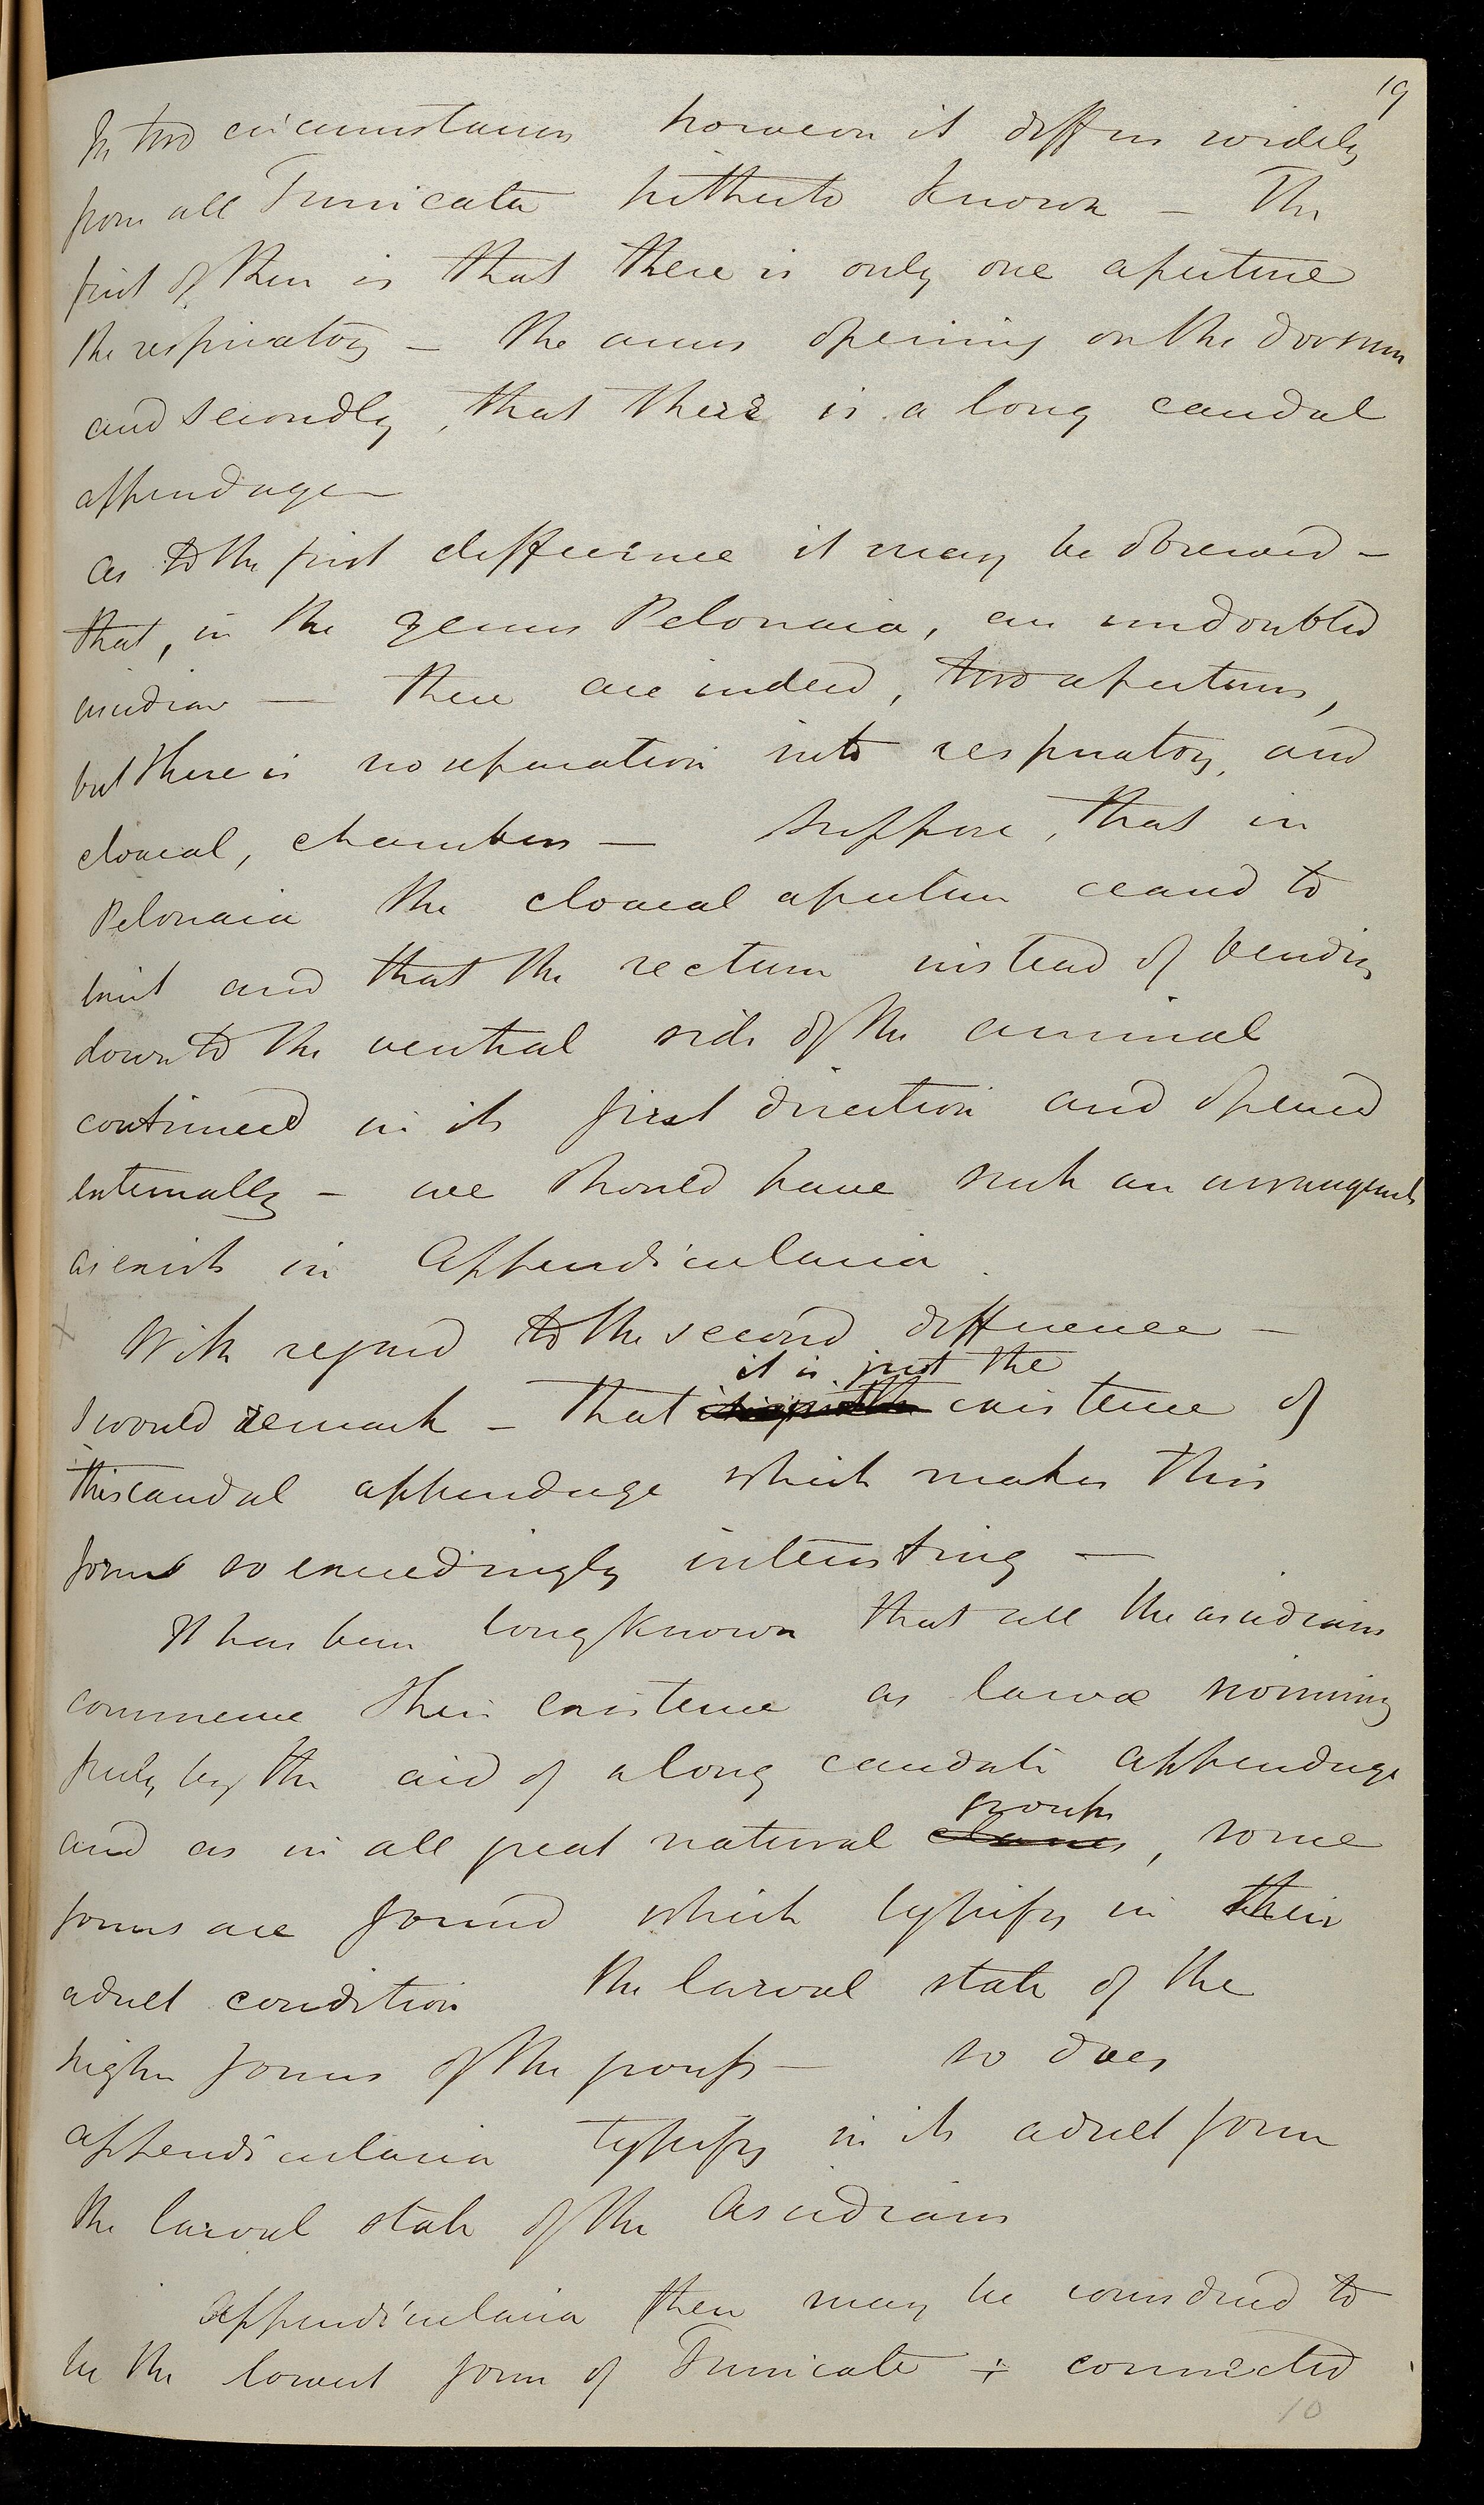 19
In two circumstances however it differs widely
from all Tunicata hitherto known – The
first of them is that there is only one aperture
the respiratory – the anus opening on the dorsum
and secondly, that there is a long caudal
appendage –
As to the first difference it may be observed –
that, in the genus Pelonaia, an undoubted
ascidian — there are indeed, two apertures,
but there is no separation into respiratory, and
cloacal, chambers — Suppose, that in
Pelonaia the cloacal aperture ceased to
exist and that the rectum instead of bending
down to the ventral side of the animal
continued in its first direction and opened
externally – we should have such an arrangement
as exists in Appendicularia.
x
With regard to the second difference –
it is just the
I would remark – that existence of
this caudal appendage which makes this
form so exceedingly interesting —
It has been long known that all the ascidians
commence their existence as larvæ swimming
freely by the aid of a long caudate appendage
groups
and as in all great natural classes, some
forms are found which typify in their
adult condition the larval state of the
higher forms of the group – so does
appendicularia typify in its adult form
the larval state of the Ascidians
Appendicularia then may be considered to
be the lowest form of Tunicate ÷ connected
10